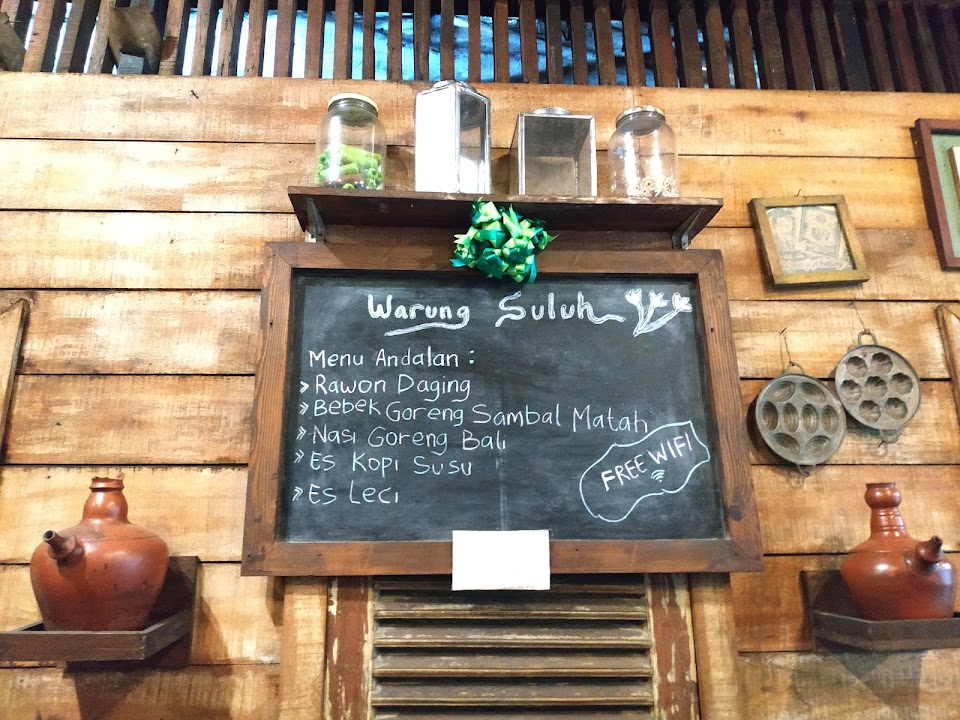 Warung Suluh
Menu Andalan :
» Rawon Daging
» Bebek Goreng Sambal Matah
» Nasi Goreng Bali
» Es Kopi Susu
» Es Leci
FREE WIFI